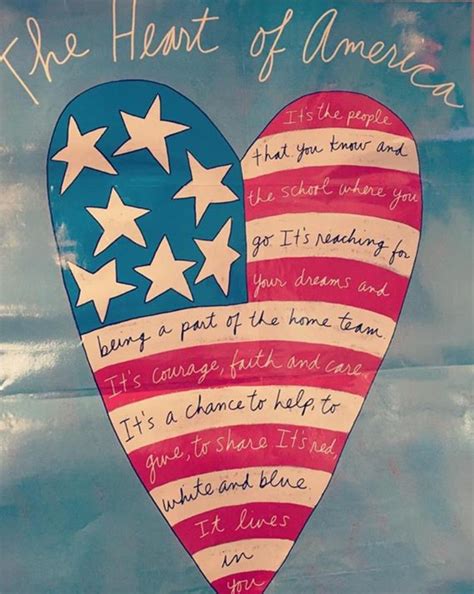 The Heart of America
It's the people
that you know and
the school where you
go. It's reaching for
your dreams and
being a part of the home team.
It's courage, faith and care.
It's a chance to help, to
give, to share. It's red,
white and blue.
It lives
in
you